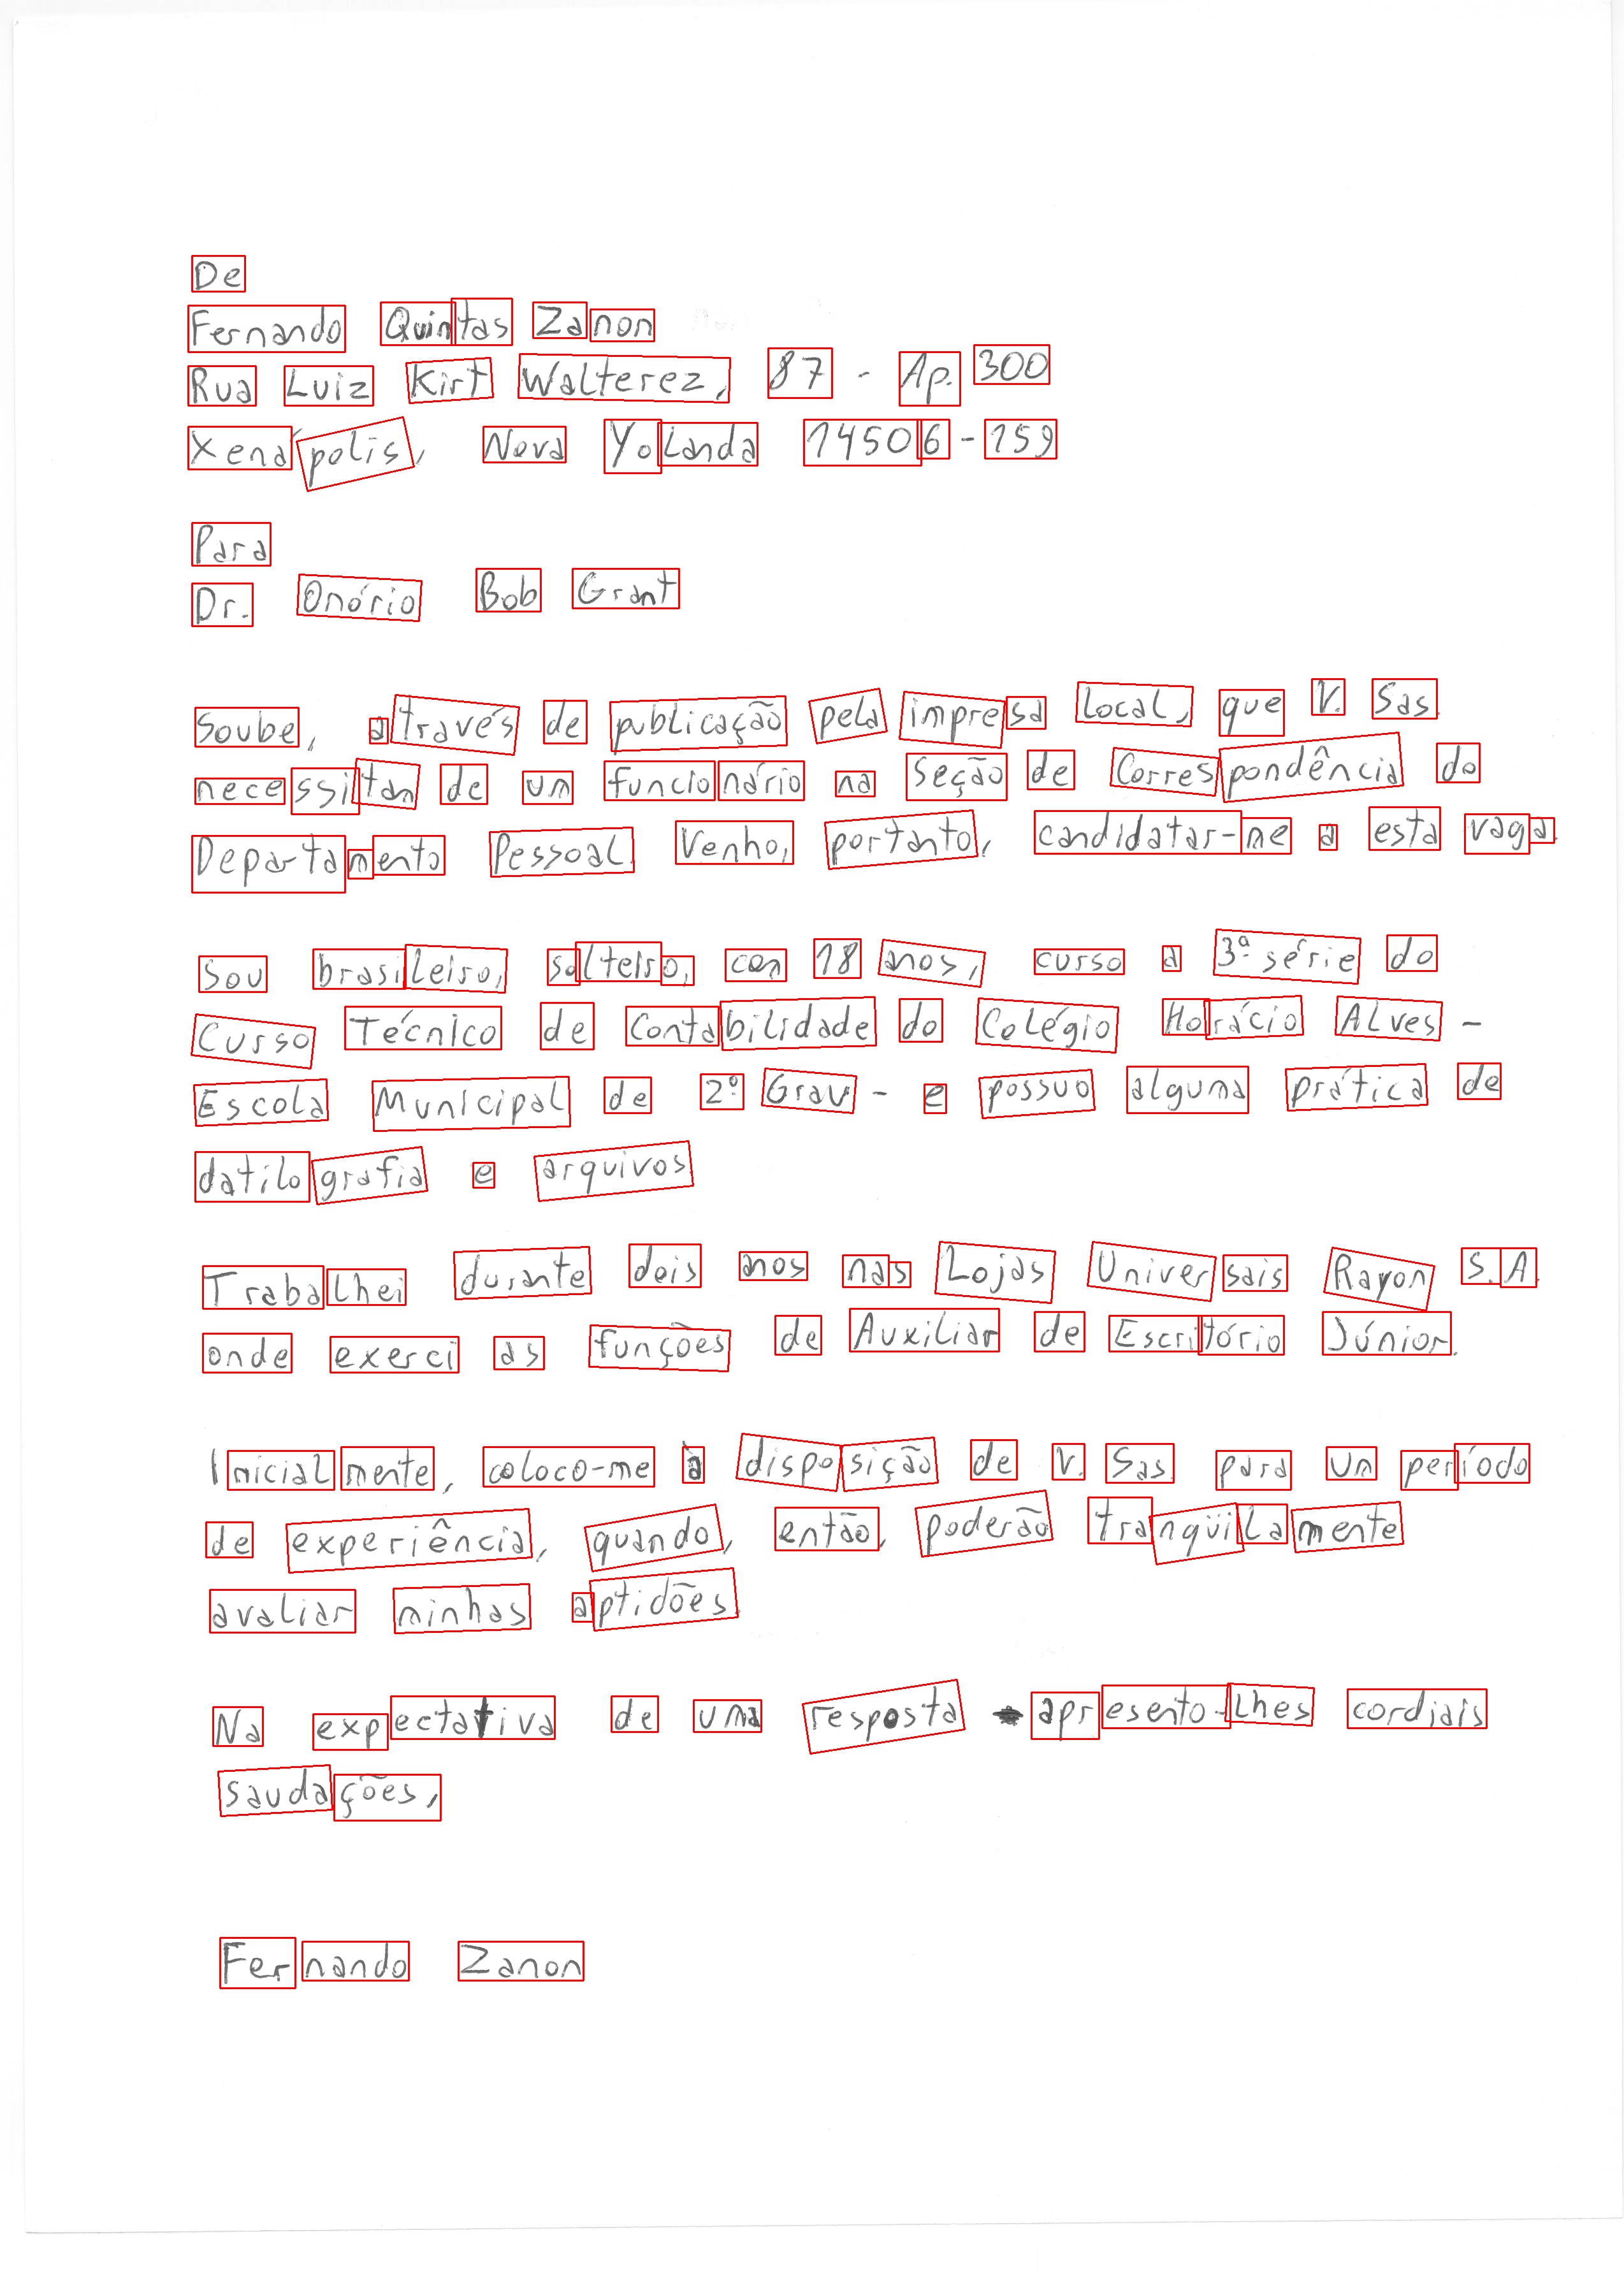 De
Fernando Quintas Zanon
Rua Luiz Kirt Walterez, 87 - Ap. 300
Xenápolis, Nova Yolanda 14506-159
Para
Dr. Onório Bob Grant
Soube, através de publicação pela impresa local, que V. Sas.
necessitam de um funcionário na seção de Correspondência do
Departamento Pessoal. Venho, portanto, candidatar-me a esta vaga.
Sou brasileiro, solteiro, com 18 anos, curso a 3ª série do
Curso Técnico de Contabilidade do Colégio Horácio Alves -
Escola Municipal de 2º Grau - e possuo alguma prática de
datilografia e arquivos.
Trabalhei durante dois anos nas Lojas Universais Rayon S.A.
onde exerci as funções de Auxiliar de Escritório Júnior.
Inicialmente, coloco-me à disposição de V. Sas. para um período
de experiência, quando, então, poderão tranqüilamente
avaliar minhas aptidões.
Na expectativa de uma resposta apresento-lhes cordiais
saudações,
Fernando Zanon